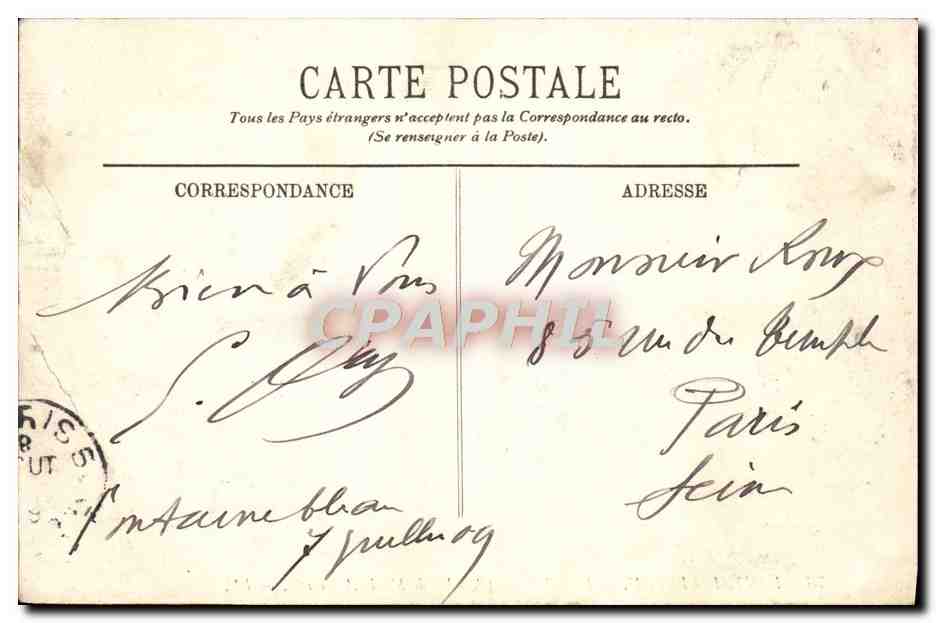 CARTE POSTALE
Tous les Pays étrangers n'acceptent pas la Correspondance au recto.
(Se renseigner à la Poste).
CORRESPONDANCE
Bien à Vous
Fontainebleau
7 juillet 09
ADRESSE
Monsieur Roux
85 rue du Temple
Paris
Seine
CPAPHIL